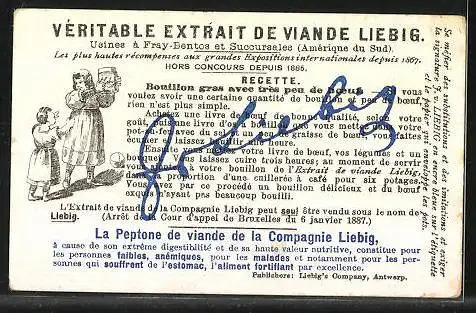 VÉRITABLE EXTRAIT DE VIANDE LIEBIG.
Usines à Fray-Bentos et Succursales (Amérique du Sud).
Les plus hautes récompenses aux grandes Expositions internationales depuis 1867.
HORS CONCOURS DEPUIS 1885.
RECETTE.
Bouillon gras avec très peu de bœuf.
voulez avoir une certaine quantité de bouillon et peu de bœuf,
rien n'est plus simple.
Achetez une livre de bœuf de bonne qualité, selon votre
livre d'os que vous mettez
pot-au-feu avec du sel et un
écument qu'une demi-heure.
votre livre de bœuf, vos légumes et un
Vous laissez cuire trois heures; au moment de servir
votre bouillon de l'Extrait de viande Liebig,
dans la proportion d'une cuillerée à café pour six potages.
Vous avez par ce procédé un bouillon délicieux et du bœuf
exquis n'ayant pas beaucoup bouilli.
L'Extrait de viande de la Compagnie Liebig peut seul être vendu sous le nom de
Liebig. (Arrêt de la Cour d'appel de Bruxelles du 6 janvier 1887.)
La Peptone de viande de la Compagnie Liebig,
à cause de son extrême digestibilité et de sa haute valeur nutritive, constitue pour
les personnes faibles, anémiques, pour les malades et notamment pour les per-
sonnes qui souffrent de l'estomac, l'aliment fortifiant par excellence.
Publishers: Liebig's Company, Antwerp.
Se méfier des substitutions et des imitations et exiger
la signature J. LIEBIG en encre bleue sur l'étiquette
et le papier qui enveloppe les pots.
J. v. Liebig